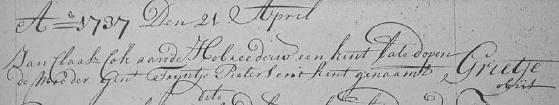 Ao 1737 Den 21 April
Jan Claasz Cok aande Hobreederw een kint late dopen
de moeder Gint Tryntje Pieters en it kint genaamt Grietje
obiit
dito